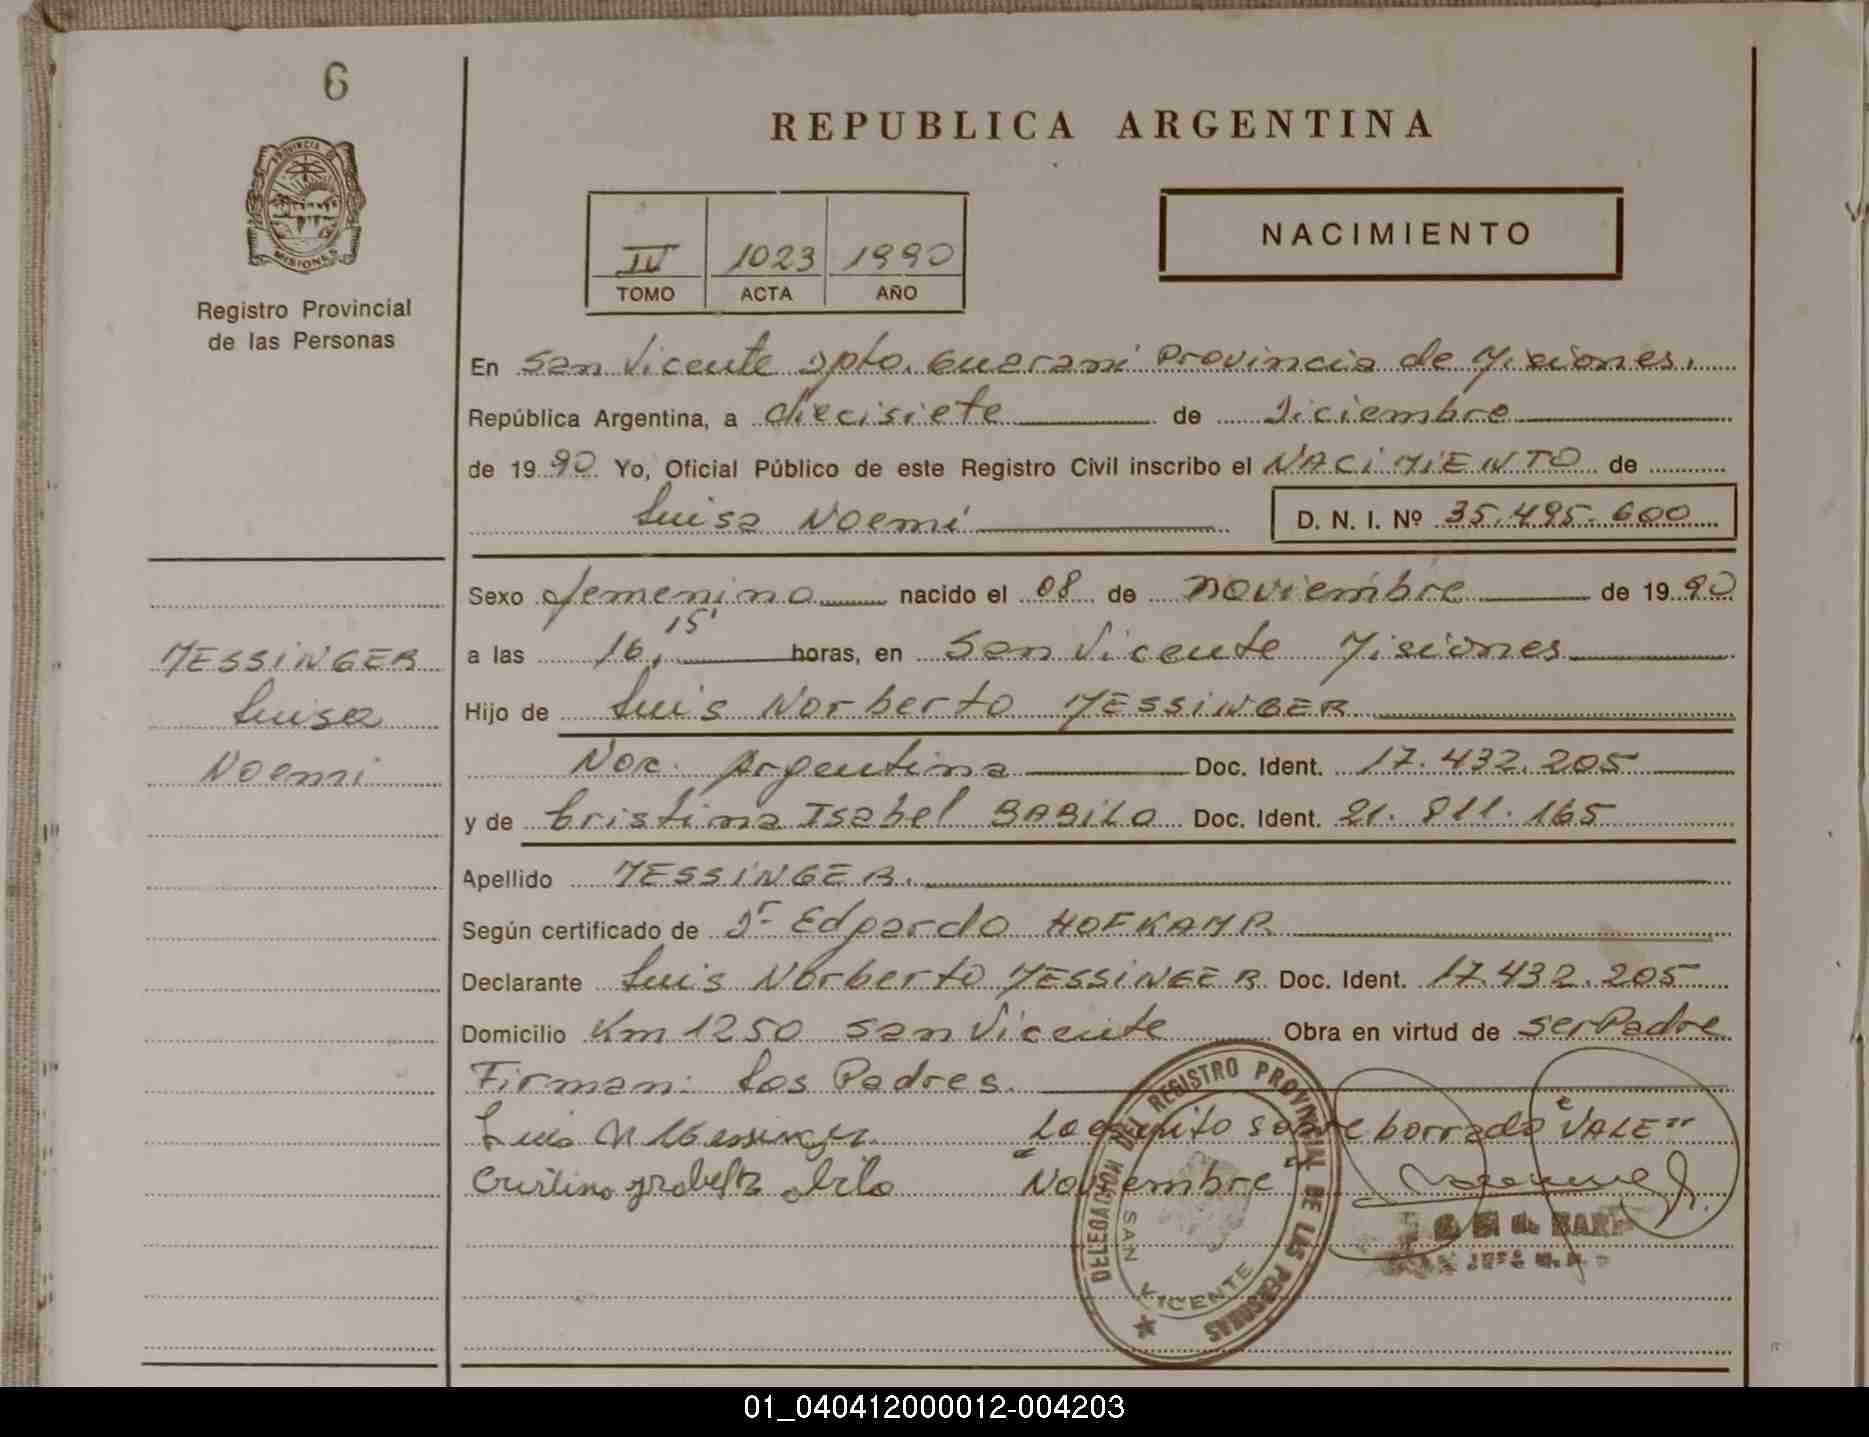 6
PROVINCIA DE
MISIONES
Registro Provincial
de las Personas
REPUBLICA ARGENTINA
IV 1023 1990
TOMO ACTA AÑO
NACIMIENTO
En San Vicente Dpto. Guaraní Provincia de Misiones.
República Argentina, a diecisiete de Diciembre
de 1990 Yo, Oficial Público de este Registro Civil inscribo el NACIMIENTO de
Luisa Noemí D. N. I. Nº 35.495.600
Sexo femenino nacido el 08 de noviembre de 1990
a las 16,15' horas, en San Vicente Misiones
Hijo de Luis Norberto MESSINGER
Nac. Argentina Doc. Ident. 17.432.205
y de Cristina Isabel BABILO Doc. Ident. 21.811.165
Apellido MESSINGER.
Según certificado de Dr Edgardo HOFKAMP
Declarante Luis Norberto MESSINGER Doc. Ident. 17.432.205
Domicilio Km 1250 San Vicente Obra en virtud de ser Padre
Firman: Los Padres.
Luis N Messinger Lo escrito sobre borrado "VALE"
"Noviembre"
MESSINGER
Luisa
Noemi
DELEGACION DEL REGISTRO PROVINCIAL DE LAS PERSONAS
SAN VICENTE
01_040412000012-004203